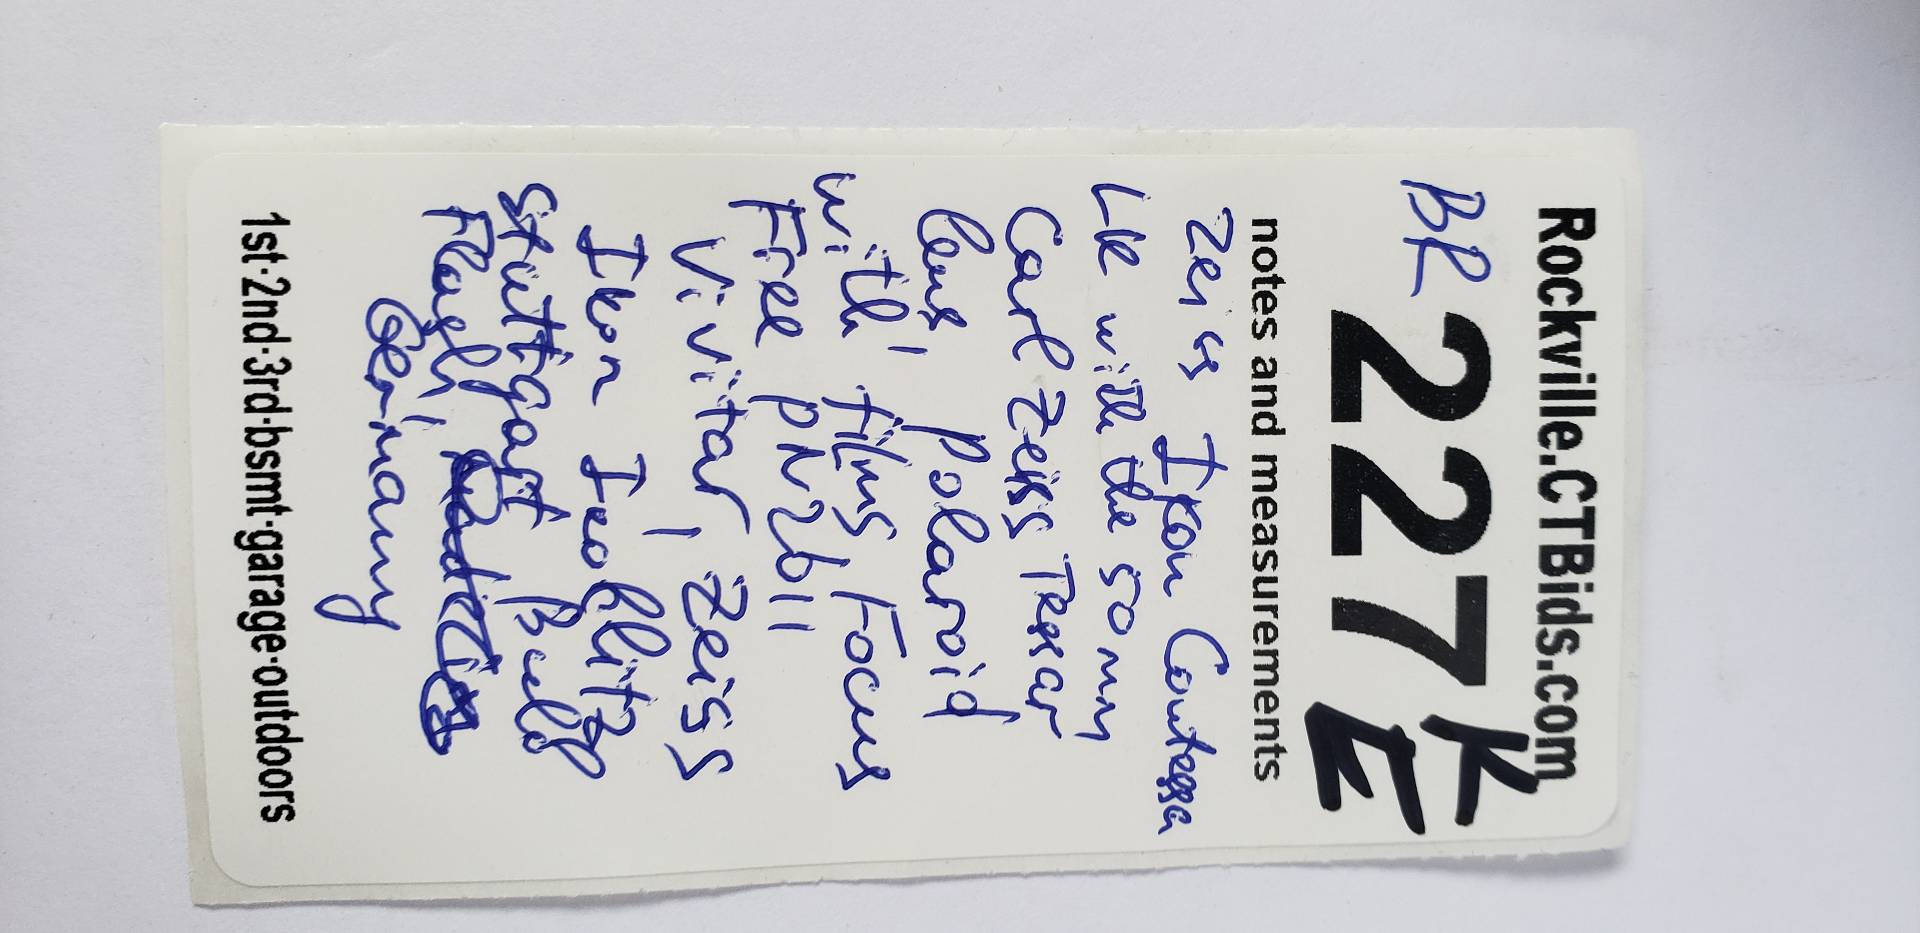 Rockville.CTBids.com
BR 227 K
E
notes and measurements
Zeiss Ikon Contessa
LK with the 50 mm
Carl Zeiss Tessar
lens, Polaroid
with films Focus
Free PN2611
Vivitar, Zeiss
Ikon Ikoblitz
Stuttgart Bulb
Flash
Germany
1st·2nd·3rd·bsmt·garage·outdoors